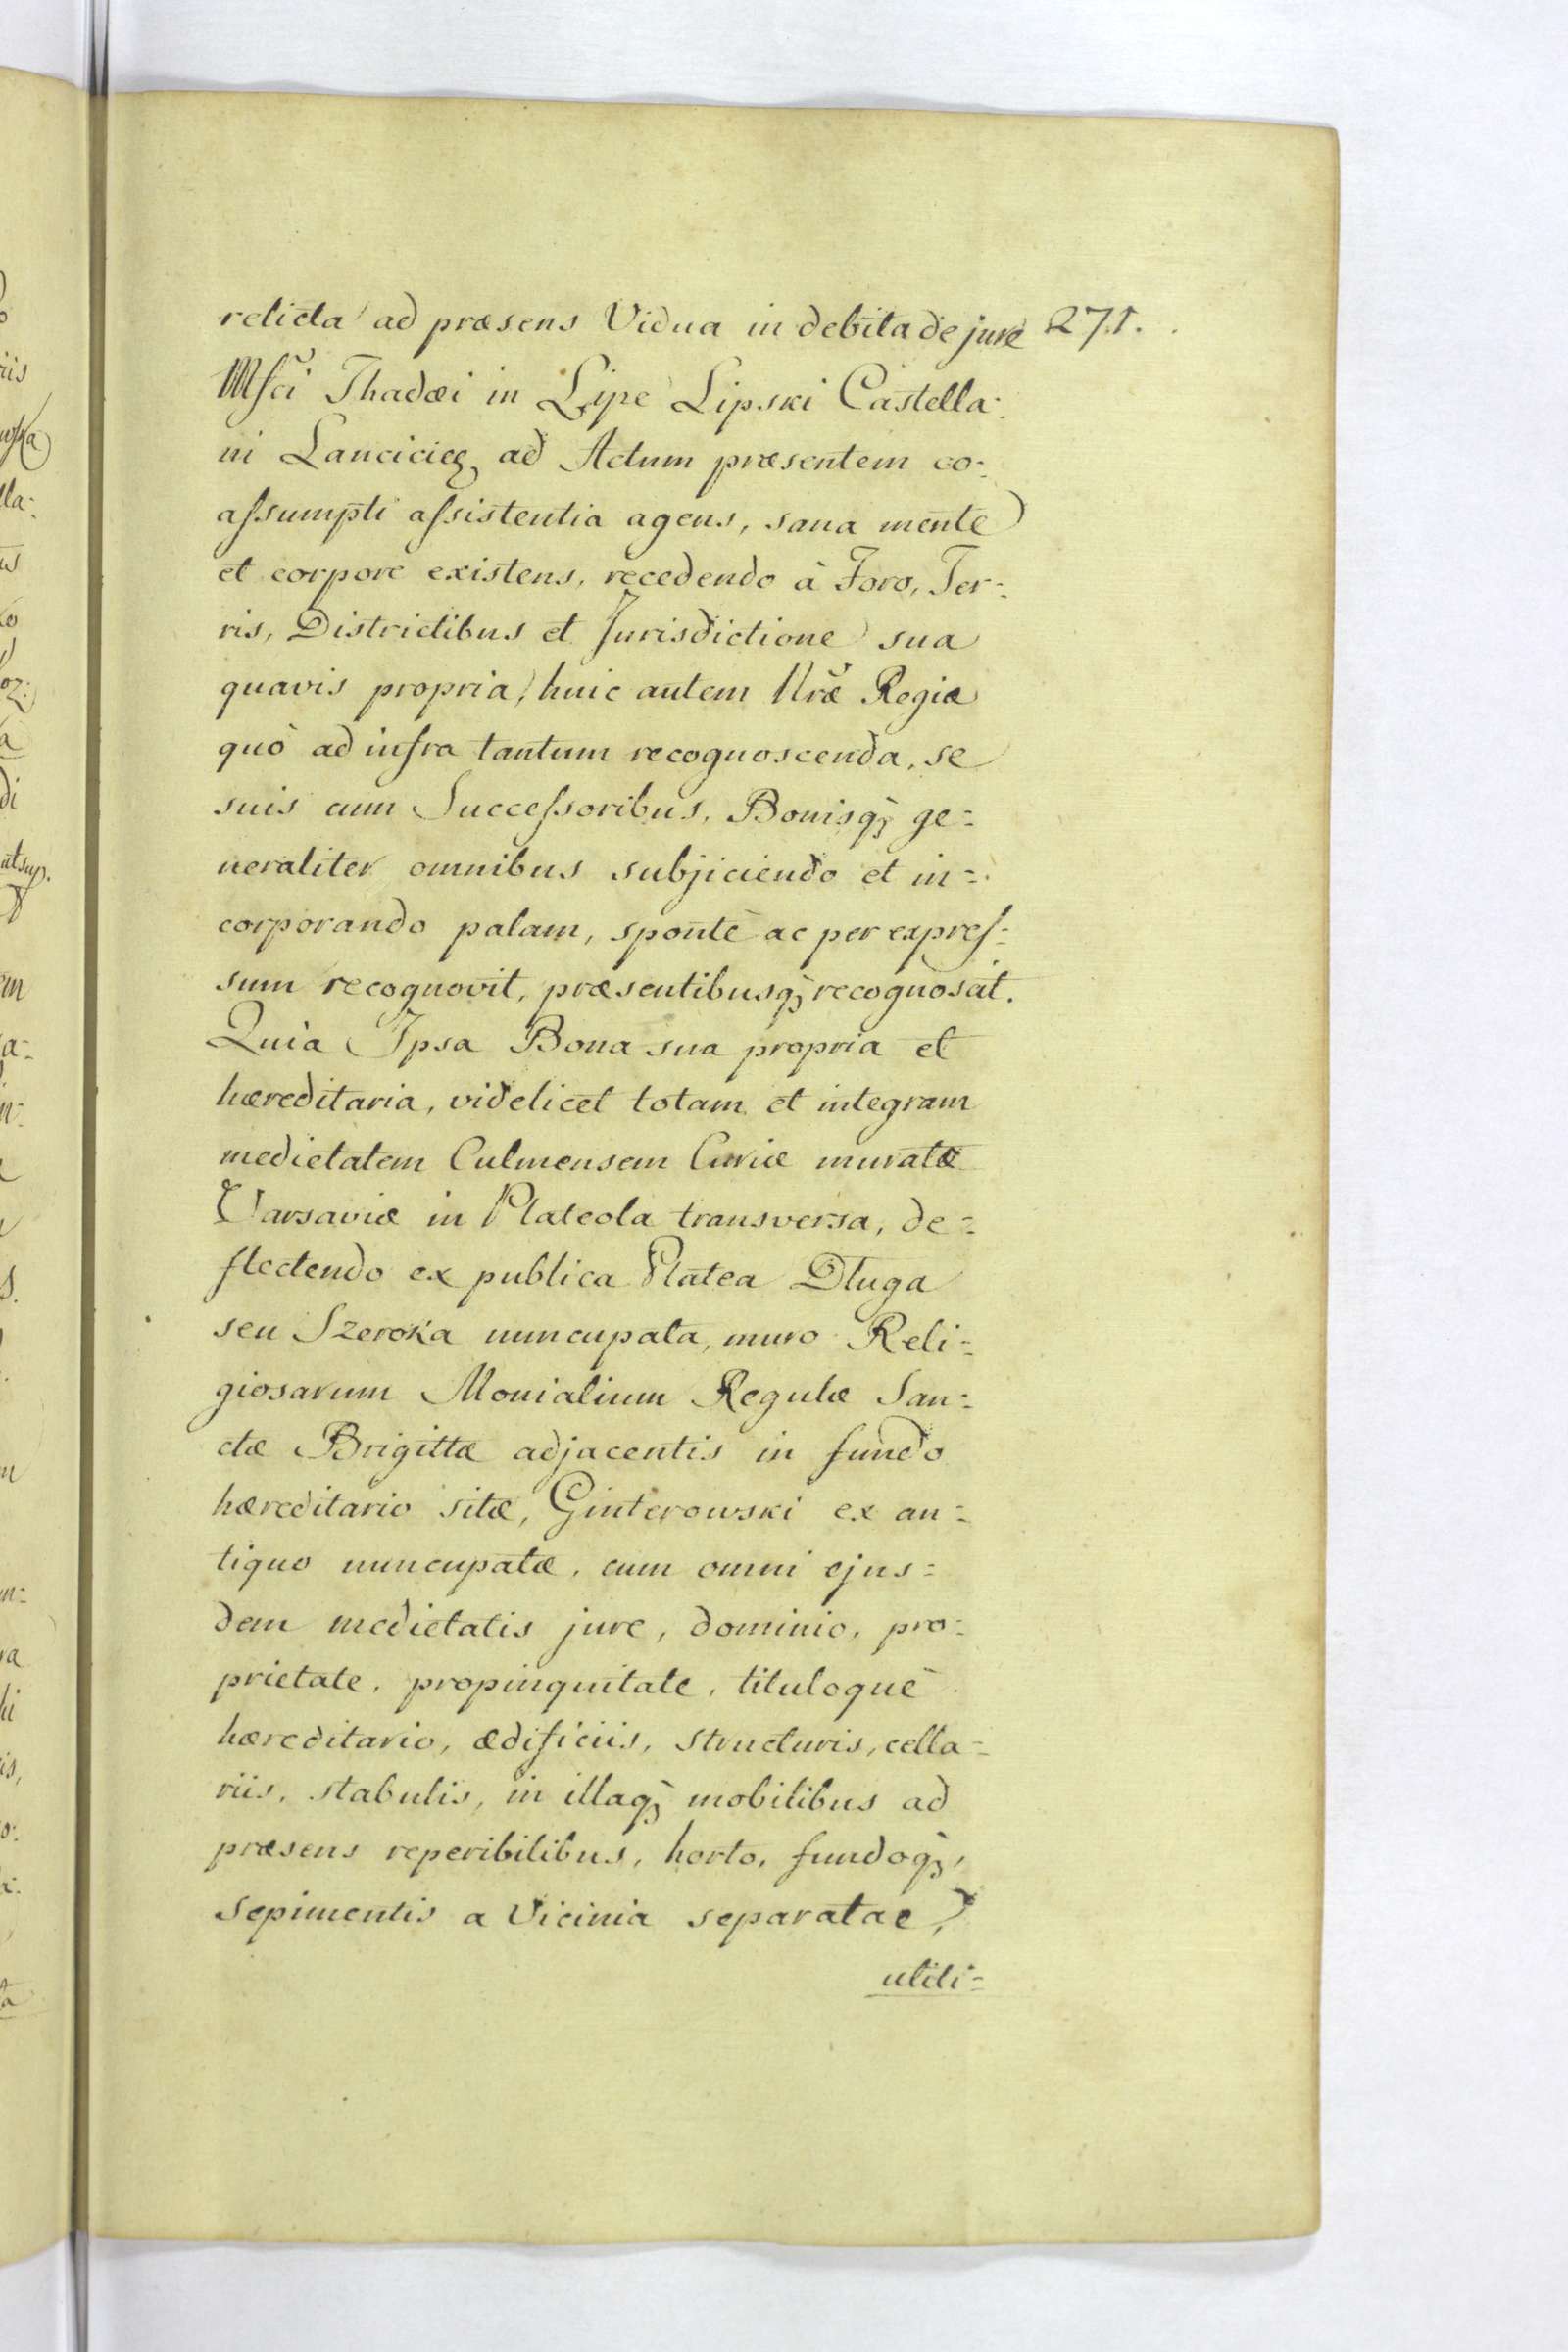 relicta ad præsens Vidua in debita de jure 271.
Mſci Thadæi in Lipe Lipski Castella-
ni Lancicieꝫ ad Actum præsentem co-
aſsumpti aſsistentia agens, sana mente
et corpore existens, recedendo à Foro, Ter-
ris, Districtibus et Jurisdictione sua
quavis propria, huic autem Nræ Regiæ
quò ad infra tantum recognoscenda, se
suis cum Succeſsoribus, Bonisqꝫ ge=
neraliter omnibus subjiciendo et in=
corporando palam, spontè ac per expreſ=
sum recognovit, præsentibusqꝫ recognoscit.
Quia Ipsa Bona sua propria et
hæreditaria, videlicet totam et integram
medietatem Culmensem Curiæ muratæ
Varsaviæ in Plateola transversa, de=
flectendo ex publica Platea Długa
seu Szeroka nuncupata, muro Reli=
giosarum Monialium Regulæ San=
ctæ Brigittæ adjacentis in fundo
hæreditario sitæ, Ginterowski ex an=
tiquo nuncupatæ, cum omni ejus=
dem medietatis jure, dominio, pro-
prietate, propinquitate, tituloquè
hæreditario, ædificiis, structuris, cella=
riis, stabulis, in illaqꝫ mobilibus ad
præsens reperibilibus, horto, fundoqꝫ,
sepimentis a Vicinia separatae,
utili=